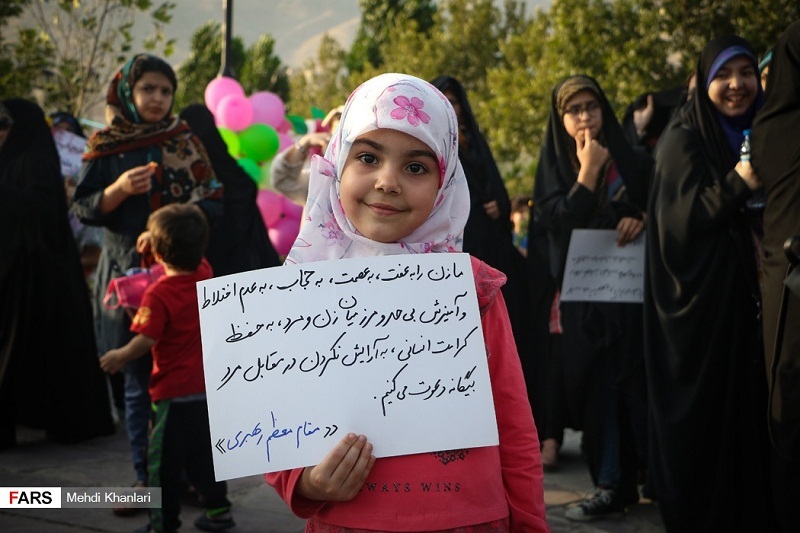 ما زن را به عفت، به عصمت، به حجاب، به عدم اختلاط
و آمیزش بی حد و مرز میان زن و مرد، به حفظ
کرامت انسانی، به آرایش نکردن در مقابل مرد
بیگانه دعوت می کنیم.
«مقام معظم رهبری»
WAYS WINS
FARS Mehdi Khanlari